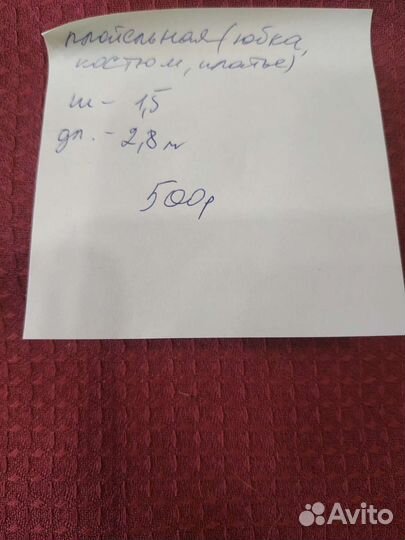 плательная (юбка,
костюм, платье)
ш - 1,5
дл. - 2,8 м
500р
Avito